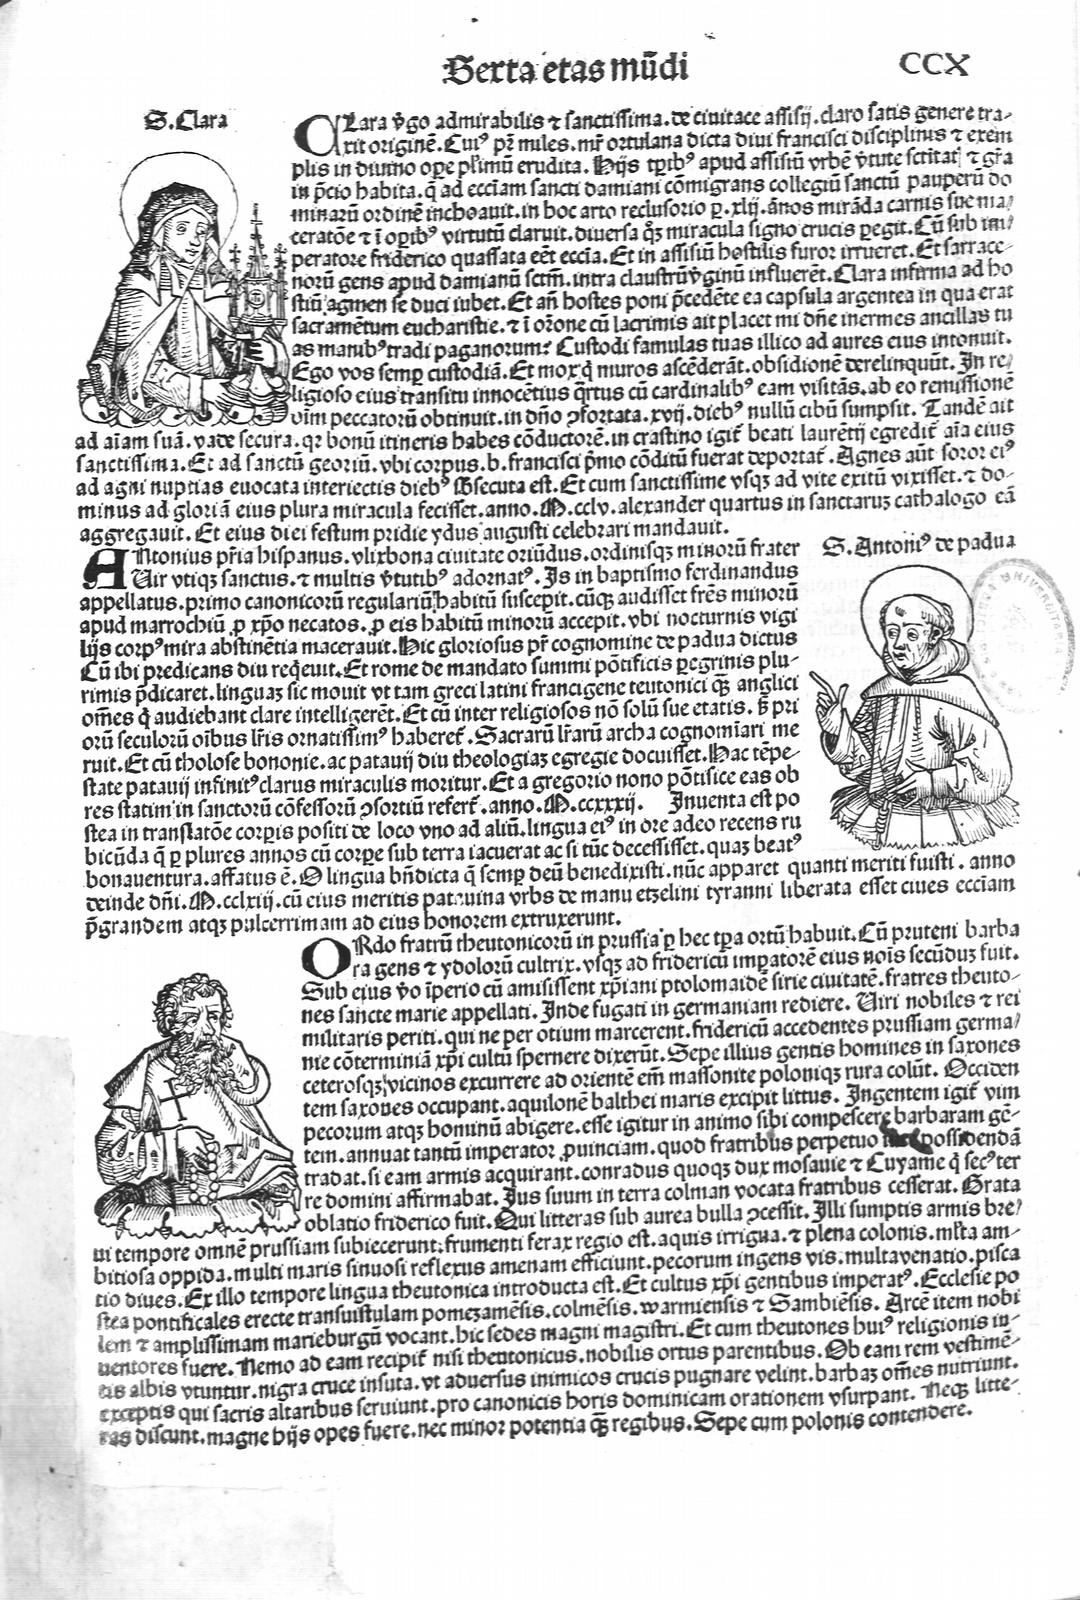 Sexta etas mūdi
CCX
S. Clara
CLara v̄go admirabilis ⁊ sanctissima. de ciuitace assisij. claro satis genere tra-
xit originē. Cuiꝰ pr̄ miles. mr̄ ortulana dicta diui francisci disciplinis ⁊ exem
plis in diuino oꝑe plimū erudita. Hijs tꝑibꝰ apud assisiū vrbē v̄tute sctitat⁊ ⁊ gr̄a
in p̄cio habita. q̄ ad eccīam sancti damiani cōmigrans collegiū sanctū pauperū do
minarū ordinē inchoauit. in hoc arto reclusorio ꝑ. xlij. ānos mirāda carnis sue ma/
ceratōe ⁊ ī oꝑibꝰ virtutū claruit. diuersa q̄ꝫ miracula signo crucis ꝑegit. Cū sub im/
peratore friderico quassata eēt eccīa. Et in assisiū hostilis furor irrueret. Et sarrace-
norū gens apud damianū sctm̄. intra claustrū v̄ginū influerēt. Clara infirma ad ho
stiū agmen se duci iubet. Et an̄ hostes poni p̄cedēte ea capsula argentea in qua erat
sacramētum eucharistie. ⁊ ī or̄one cū lacrimis ait placet mi dn̄e inermes ancillas tu
as manibꝰ tradi paganorum? Custodi famulas tuas illico ad aures eius intonuit.
Ego vos semꝑ custodiā. Et mox q̄ muros ascēderāt. obsidionē derelinquūt. In re/
ligioso eius transitu innocētius q̄rtus cū cardinalibꝰ eam visitās. ab eo remissionē
oīm peccatorū obtinuit. in dn̄o ꝯfortata. xvij. diebꝰ nullū cibū sumpsit. Tandē ait
ad aīam suā. vade secura. qꝛ bonū itineris habes cōductorē. in crastino igit̄ beati laurētij egredit̄ aīa eius
sanctissima. Et ad sanctū georiū. vbi corpus. b. francisci p̄mo cōditū fuerat deportat̄. Agnes aūt soror eiꝰ
ad agni nuptias euocata interiectis diebꝰ s̄bsecuta est. Et cum sanctissime vsqꝫ ad vite exitū vixisset. ⁊ do-
minus ad gloriā eius plura miracula fecisset. anno. M.cclv. alexander quartus in sanctaruꝫ cathalogo eā
aggregauit. Et eius diei festum pridie ydus augusti celebrari mandauit.
S. Antoniꝰ de padua
ANtonius pr̄ia hispanus. vlixbona ciuitate oriūdus. ordinisqꝫ minorū frater
Uir vtiqꝫ sanctus. ⁊ multis v̄tutibꝰ adornatꝰ. Is in baptismo ferdinandus
appellatus. primo canonicorū regulariū habitū suscepit. cūqꝫ audisset frēs minorū
apud marrochiū ꝓ xp̄o necatos. ꝓ eis habitū minorū accepit. vbi nocturnis vigi
lijs corpꝰ mira abstinētia macerauit. Hic gloriosus pr̄ cognomine de padua dictus
Cū ibi predicans diu reqeuit. Et rome de mandato summi pōtificis ꝑegrinis plu-
rimis p̄dicaret. linguaꝫ sic mouit vt tam greci latini francigene teutonici q̄ꝫ anglici
om̄es q̄ audiebant clare intelligerēt. Et cū inter religiosos nō solū sue etatis. s̄ pri
orū seculorū oībus lr̄is ornatissimꝰ haberet̄. Sacrarū lr̄arū archa cognomīari me
ruit. Et cū tholose bononie. ac patauij diu theologiaꝫ egregie docuisset. Hac tēpe-
state patauij infinitꝰ clarus miraculis moritur. Et a gregorio nono pōtifice eas ob
res statim in sanctorū cōfessorū ꝯsortiū refert̄. anno. M.ccxxxij. Inuenta est po
stea in translatōe corꝑis positi de loco vno ad aliū. lingua eiꝰ in ore adeo recens ru
bicūda q̄ ꝑ plures annos cū corꝑe sub terra iacuerat ac si tūc decessisset. quaꝫ beatꝰ
bonauentura. affatus ē. O lingua bn̄dicta q̄ semꝑ deū benedixisti. nūc apparet quanti meriti fuisti. anno
deinde dn̄i. M.cclxiij. cū eius meritis patauina vrbs de manu etzelini tyranni liberata esset ciues eccīam
p̄grandem atqꝫ pulcerrimam ad eius honorem extruxerunt.
ORdo fratrū theutonicorū in prussia ꝑ hec tꝑa ortū habuit. Cū pruteni barba
ra gens ⁊ ydolorū cultrix. vsqꝫ ad fridericū imꝑatorē eius noīs secūduꝫ fuit.
Sub eius v̄o īperio cū amisissent xp̄iani ptolomaidē sirie ciuitatē. fratres theuto-
nes sancte marie appellati. Inde fugati in germaniam rediere. Uiri nobiles ⁊ rei
militaris periti. qui ne per otium marcerent. fridericū accedentes prussiam germa/
nie cōterminiā xp̄i cultū spernere dixerūt. Sepe illius gentis homines in saxones
ceterosqꝫ vicinos excurrere ad orientē em̄ massonite poloniqꝫ rura colūt. Occiden
tem saxones occupant. aquilonē balthei maris excipit littus. Ingentem igit̄ vim
pecorum atqꝫ hominū abigere. esse igitur in animo sibi compescere barbaram gē-
tem. annuat tantū imperator ꝓuinciam. quod fratribus perpetuo possidendā
tradat. si eam armis acquirant. conradus quoqꝫ dux mosauie ⁊ Cuyame q̄ secꝰ ter
re domini affirmabat. Jus suum in terra colman vocata fratribus cesserat. Grata
oblatio friderico fuit. Qui litteras sub aurea bulla ꝯcessit. Illi sumptis armis bre/
ui tempore omnē prussiam subiecerunt: frumenti ferax regio est. aquis irrigua. ⁊ plena colonis. ml̄ta am-
bitiosa oppida. multi maris sinuosi reflexus amenam efficiunt. pecorum ingens vis. multa venatio. pisca
tio diues. Ex illo tempore lingua theutonica introducta est. Et cultus xp̄i gentibus imperatꝰ. Ecclesie po
stea pontificales erecte transuistulam pomezamēsis. colmēsis. warmiensis ⁊ Sambiēsis. Arcē item nobi
lem ⁊ amplissimam marieburgū vocant. hic sedes magni magistri. Et cum theutones huiꝰ religionis in-
uentores fuere. Nemo ad eam recipit̄ nisi theutonicus. nobilis ortus parentibus. Ob eam rem vestimē-
tis albis vtuntur. nigra cruce insuta. vt aduersus inimicos crucis pugnare velint. barbaꝫ om̄es nutriunt.
exceptis qui sacris altaribus seruiunt. pro canonicis horis dominicam orationem vsurpant. Neqꝫ litte-
ras discunt. magne hijs opes fuere. nec minor potentia q̄ꝫ regibus. Sepe cum polonis contendere.